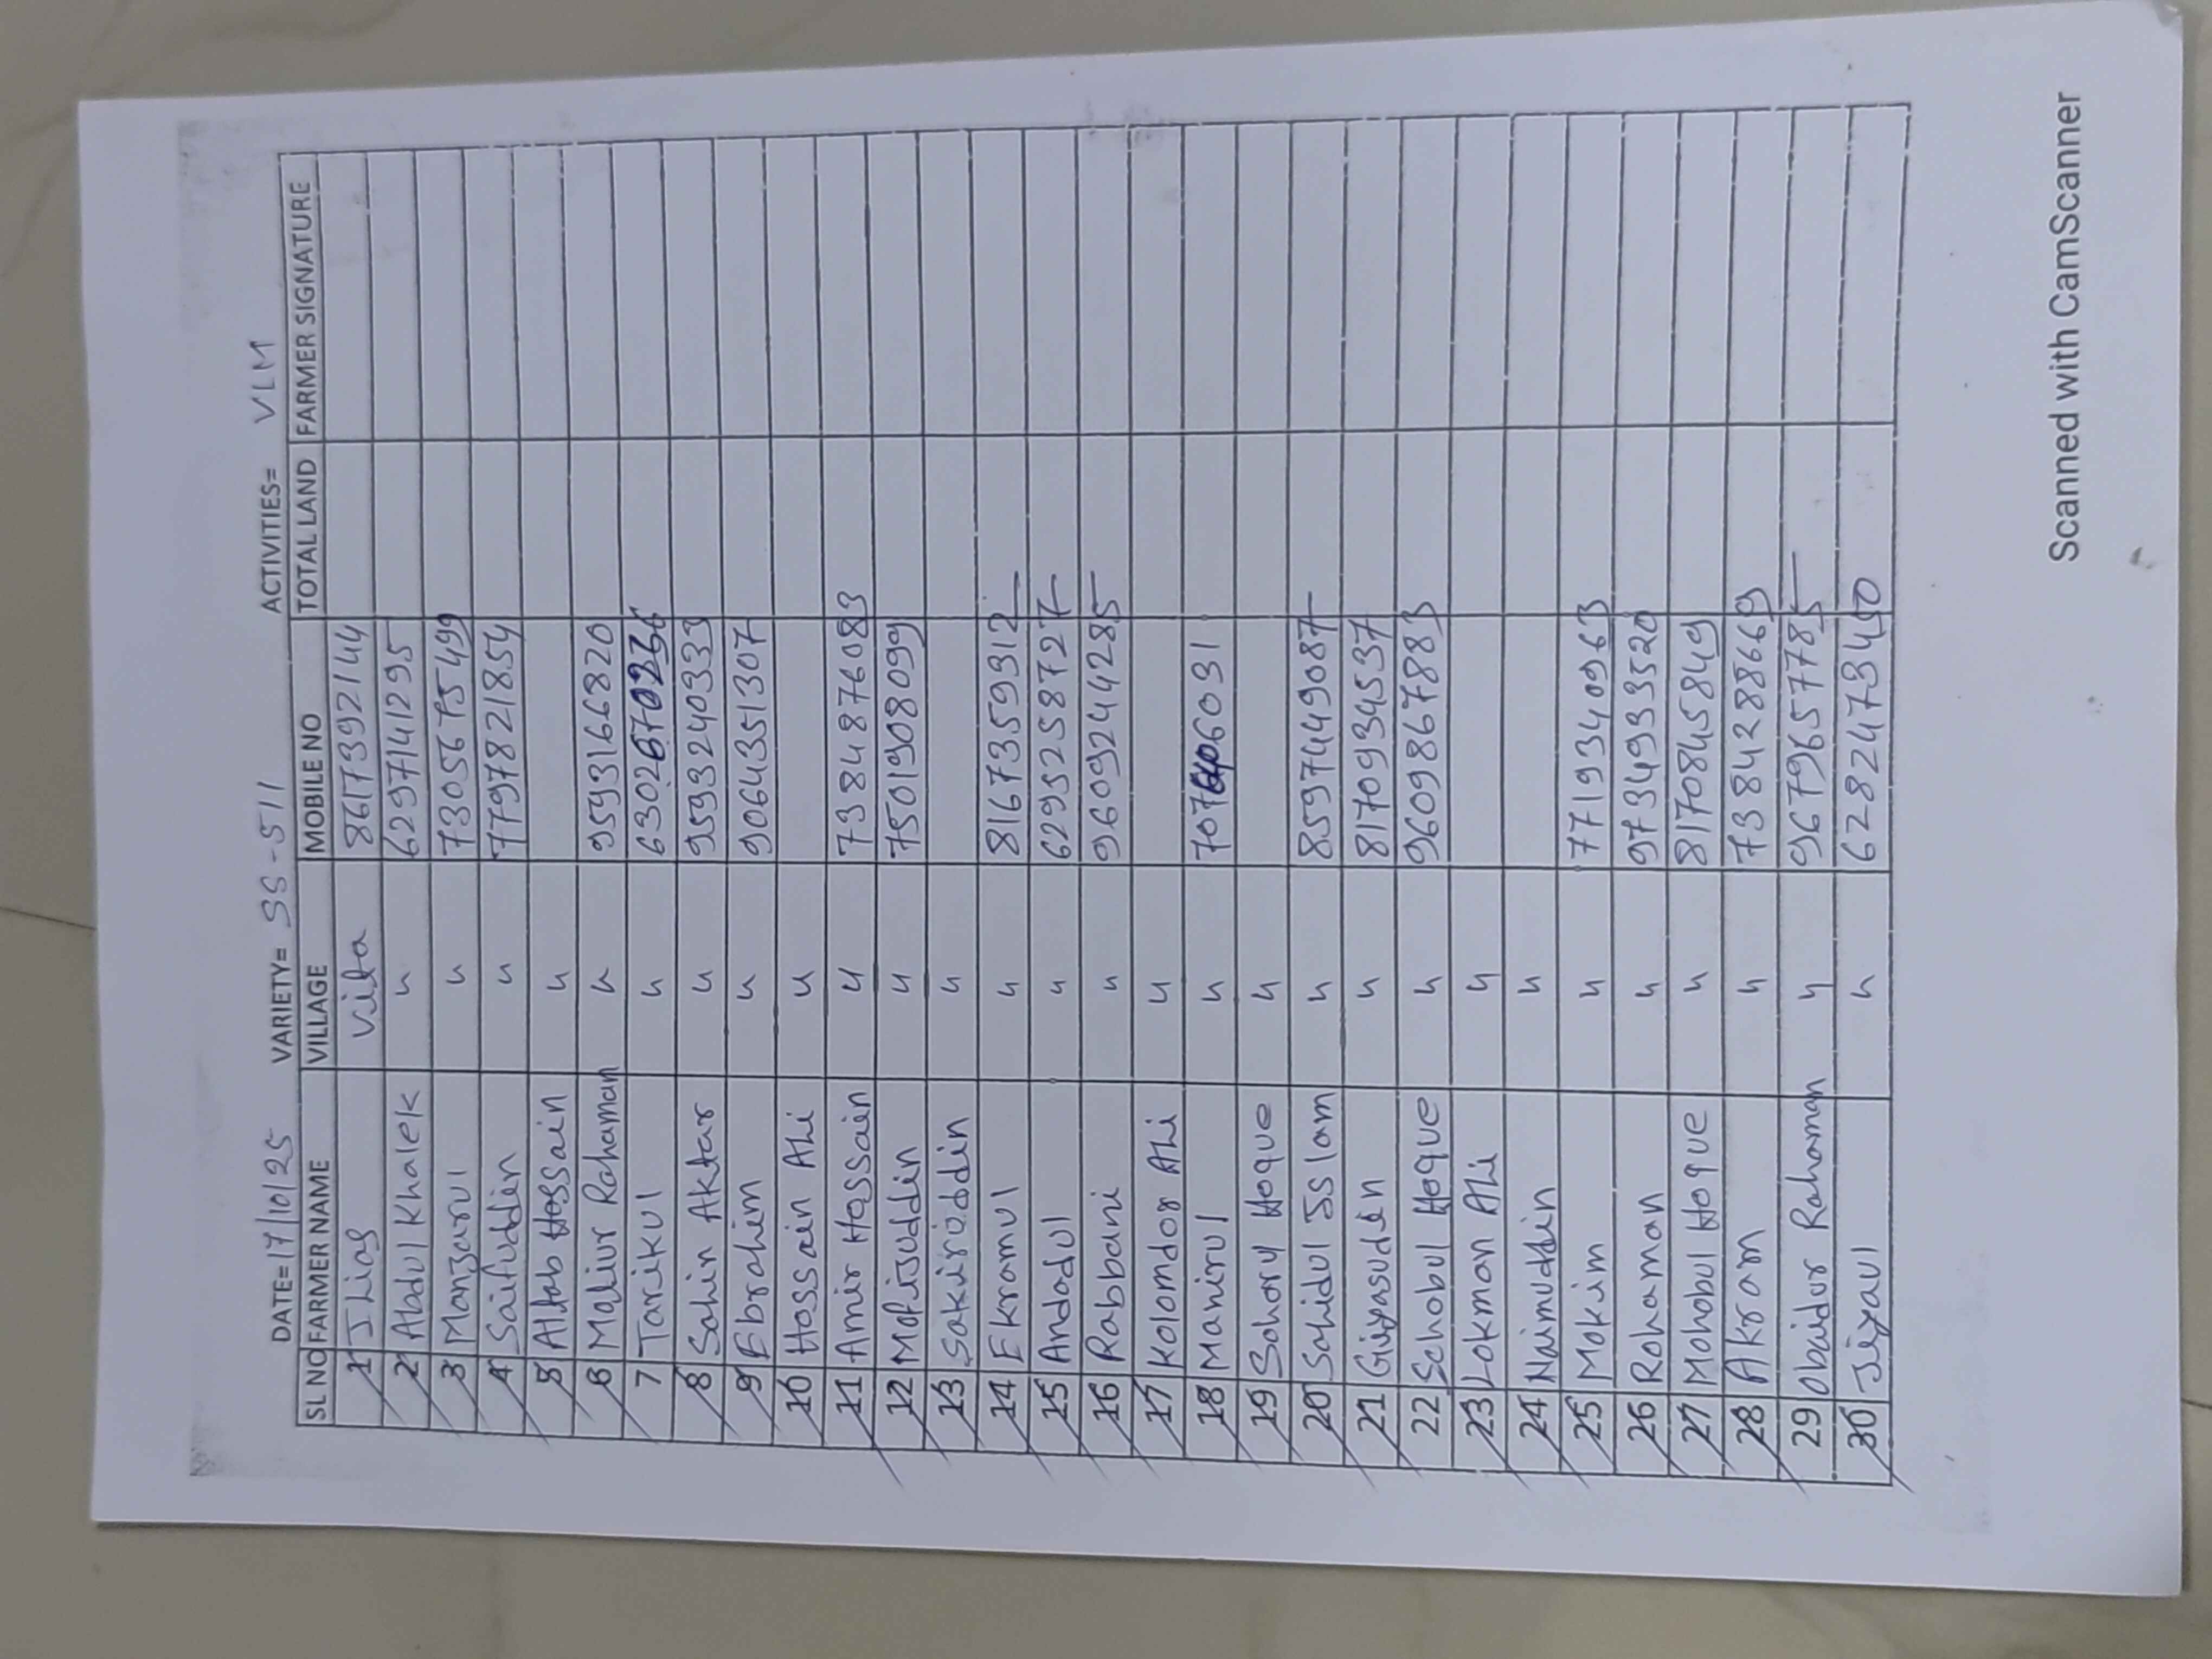 DATE= 17/10/25 VARIETY= SS-511 ACTIVITIES= VLM
SL NO FARMER NAME VILLAGE MOBILE NO TOTAL LAND FARMER SIGNATURE
1 Ilias Vita 8617392144
2 Abdul Khalek " 6297141295
3 Manzarul " 7305675499
4 Saifuddin " 7797821854
5 Altab Hossain "
6 Maliur Rahaman " 9593166820
7 Tarikul " 6302670236
8 Sahin Aktar " 9593240333
9 Ebrahim " 9064351307
10 Hossain Ali "
11 Amir Hossain " 7384876083
12 Mofijuddin " 7501908099
13 Sakiruddin "
14 Ekramul " 8167359312
15 Andadul " 6295258727
16 Rabbani " 9609244285
17 Kolomdor Ali "
18 Manirul "
19 Sohorul Hoque "
20 Sahidul Islam " 8597449087
21 Giyasuddin " 8170934537
22 Schobul Hoque " 9609867883
23 Lokman Ali "
24 Naimuddin "
25 Mokim " 7719340963
26 Rohaman " 9734993520
27 Mohobul Hoque " 8170845849
28 Akram " 7384288669
29 Obaidur Rahaman " 9679657785
30 Jiyaul "
Scanned with CamScanner